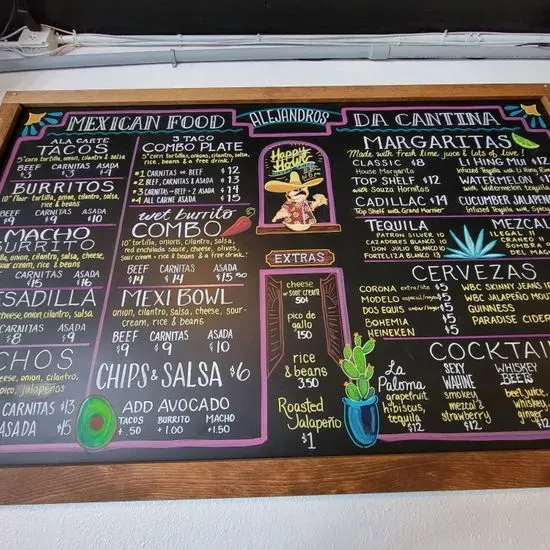 MEXICAN FOOD
ALEJANDROS
DA CANTINA
ALA CARTE
TACOS
5" corn tortilla, onion, cilantro & salsa
BEEF CARNITAS ASADA
$3 $4
BURRITOS
10" Flour tortilla, onion, cilantro, salsa
rice & beans
BEEF CARNITAS ASADA
$9 $9 $10
MACHO
BURRITO
onion, cilantro, salsa, cheese,
sour cream, rice & beans
CARNITAS ASADA
$15 $16
ESADILLA
cheese, onion, cilantro, salsa
CARNITAS ASADA
$8 $9
CHOS
cheese, onion, cilantro,
pico, jalapeños
CARNITAS $13
ASADA $15
3 TACO
COMBO PLATE
5" corn tortillas, onions, cilantro, salsa,
rice, beans & a free drink!
#1 CARNITAS OR BEEF $12
#2 BEEF, CARNITAS & ASADA $13
#3 CARNITAS OR BEEF + 2 ASADA $14
#4 ALL CARNE ASADA $15
wet burrito
COMBO
10" tortilla, onions, cilantro, salsa,
red enchilada sauce, cheese, olives,
sour cream + rice & beans & a free drink!
BEEF CARNITAS ASADA
$14 $14 $15.50
MEXI BOWL
onion, cilantro, salsa, cheese, sour-
cream, rice & beans
BEEF CARNITAS ASADA
$9 $9 $10
CHIPS & SALSA $6
ADD AVOCADO
TACOS BURRITO MACHO
+.50 +1.00 +1.50
Happy
Hour
EXTRAS
cheese
or sour cream
50¢
pico de
gallo
1.50
rice
&
beans
3.50
Roasted
Jalapeño
$1
MARGARITAS
Made with fresh lime juice & lots of love!
CLASSIC $8
House Margarita
TOP SHELF $12
with Sauza Hornitos
CADILLAC $14
Top Shelf with Grand Marnier
LI HING MUI $12
Infused Tequila with Li Hing
WATERMELON
with Watermelon tequila
CUCUMBER JALAPEN
Infused Tequila
TEQUILA
PATRON SILVER 10
CAZADORES BLANCO 10
DON JULIO BLANCO 10
FORTELIZA BLANCO 13
MEZCAL
ILEGAL 11
CRANEO 11
SOMBRA
DEL MAG
CERVEZAS
CORONA extra/lite $5
MODELO especial/negra $5
DOS EQUIS amber/lager $5
BOHEMIA $5
HEINEKEN $5
WBC SKINNY JEANS
WBC JALAPEÑO MOU
GUINNESS
PARADISE CIDER
COCKTAI
La
Paloma
grapefruit
hibiscus,
tequila
$12
SEXY
WAHINE
smokey
mezcal &
strawberry
$12
WHISKEY
BEETS
beet juice
whiskey,
ginger
$12